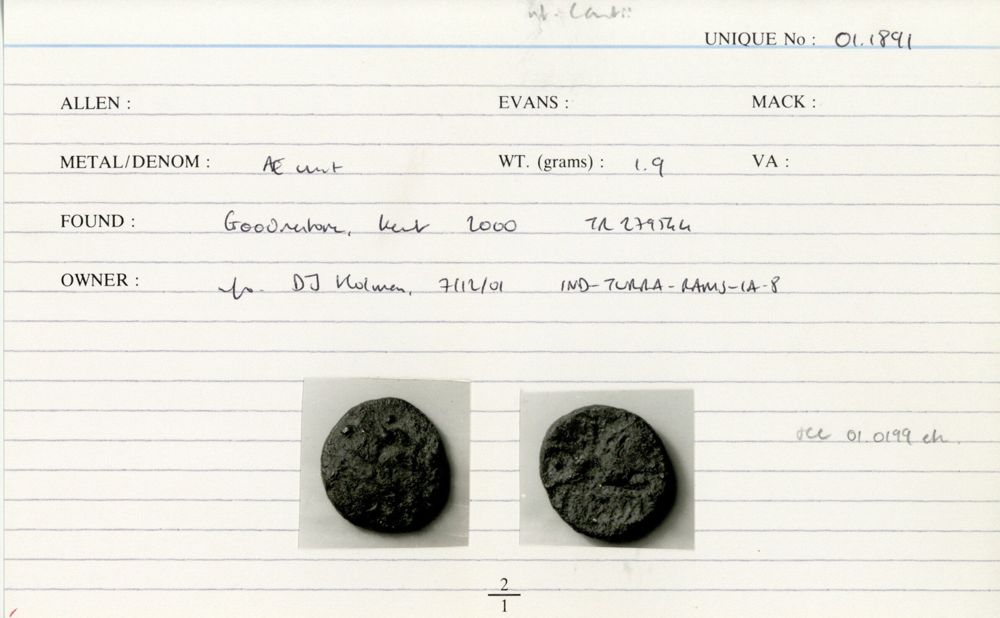 Cantii
UNIQUE No : 01.1891
ALLEN : EVANS : MACK :
METAL/DENOM : AE unit WT. (grams) : 1.9 VA :
FOUND : Goodnestone, Kent 2000 TR 279544
OWNER : DJ Holman, 7/12/01 IND-TURRA-RAMS-IA-8
see 01.0199 etc.
2
1